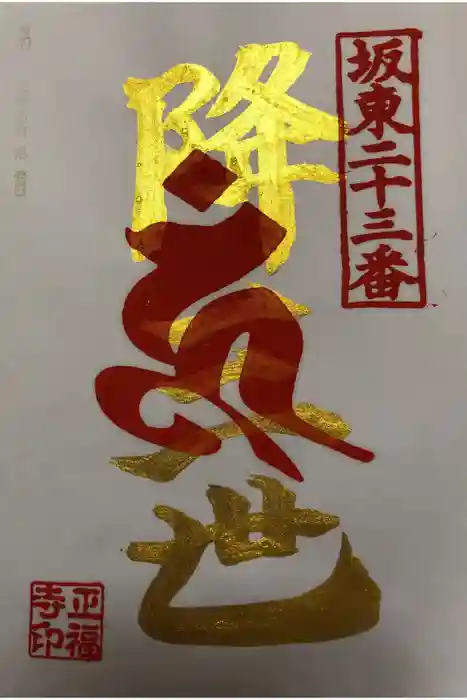 坂東二十三番
降三世
正福
寺印